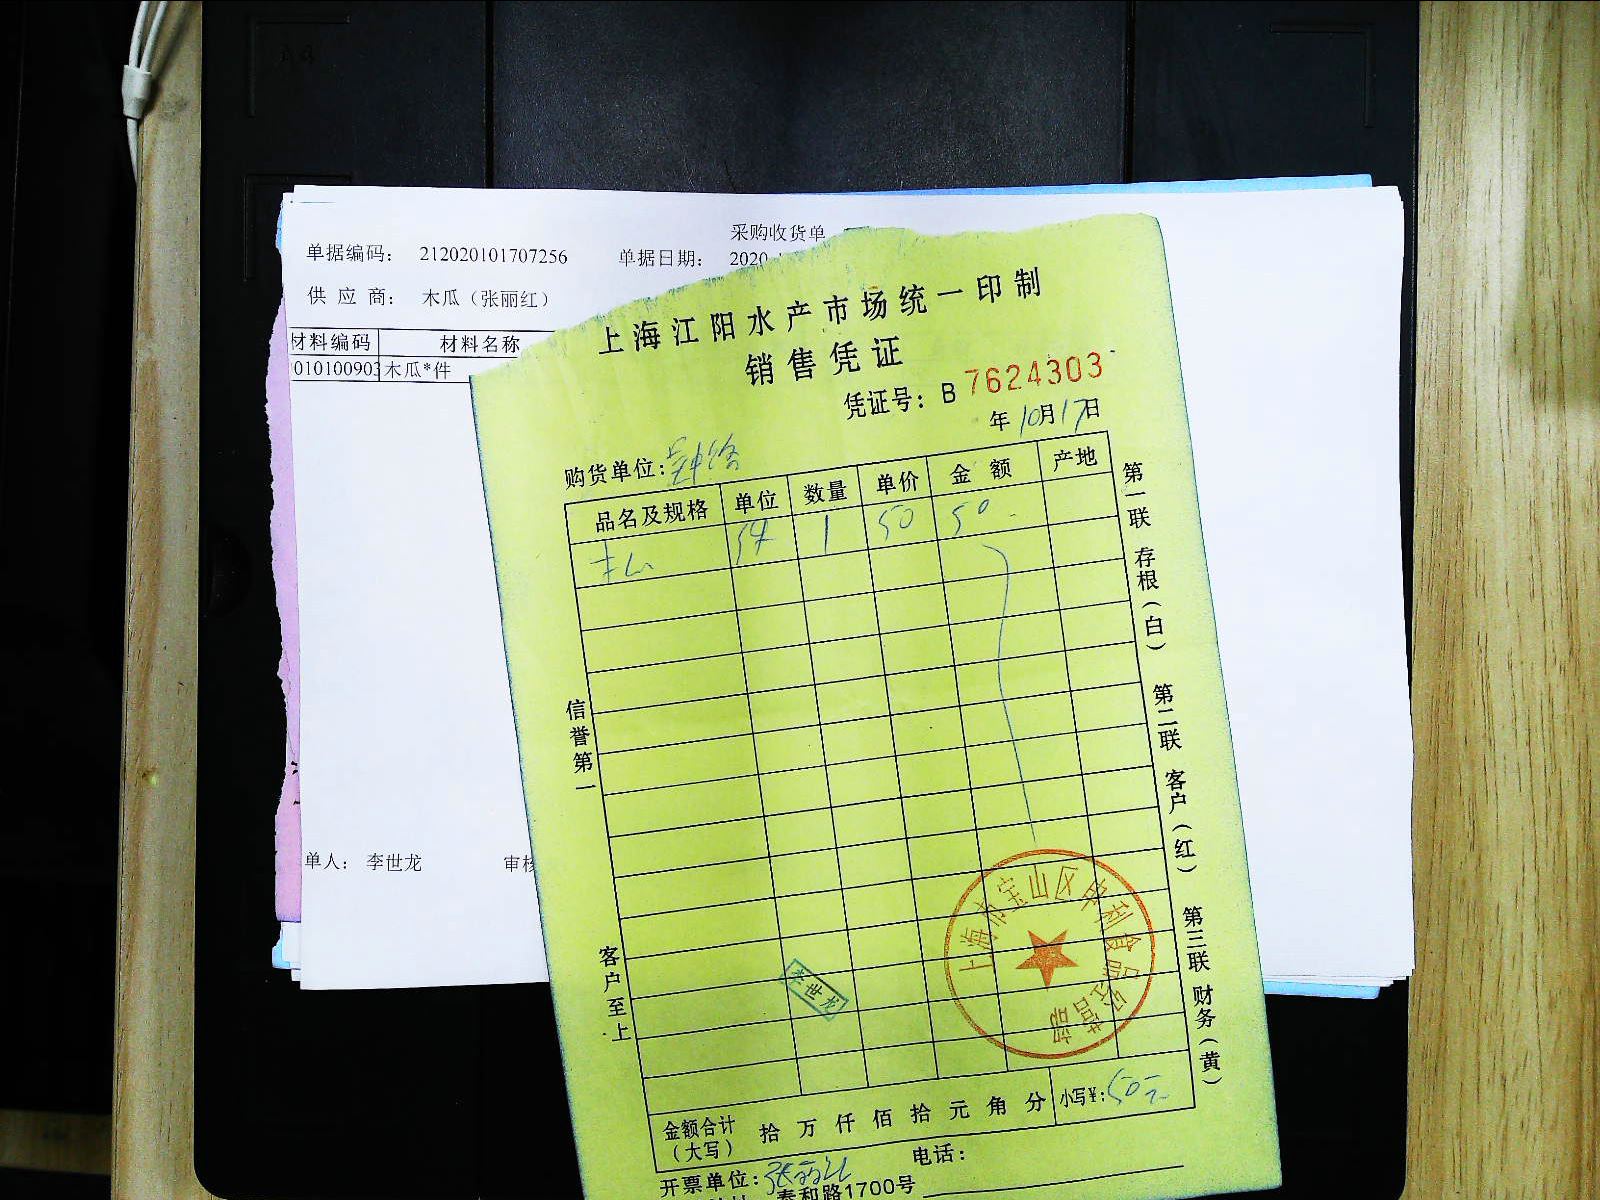 采购收货单
单据编码： 212020101707256 单据日期： 2020
供 应 商： 木瓜（张丽红）
材料编码 材料名称
010100903 木瓜*件
单人： 李世龙 审核
上海江阳水产市场统一印制
销售凭证
凭证号：B 7624303
年10月17日
购货单位：
品名及规格 单位 数量 单价 金额 产地
木瓜 件 1 50 50
信誉第一
客户至上
第一联 存根（白）
第二联 客户（红）
第三联 财务（黄）
李世龙
上海市宝山区申利食品经营部
金额合计（大写） 拾 万 仟 佰 拾 元 角 分 小写¥：50元
开票单位：张丽红 电话：
泰和路1700号